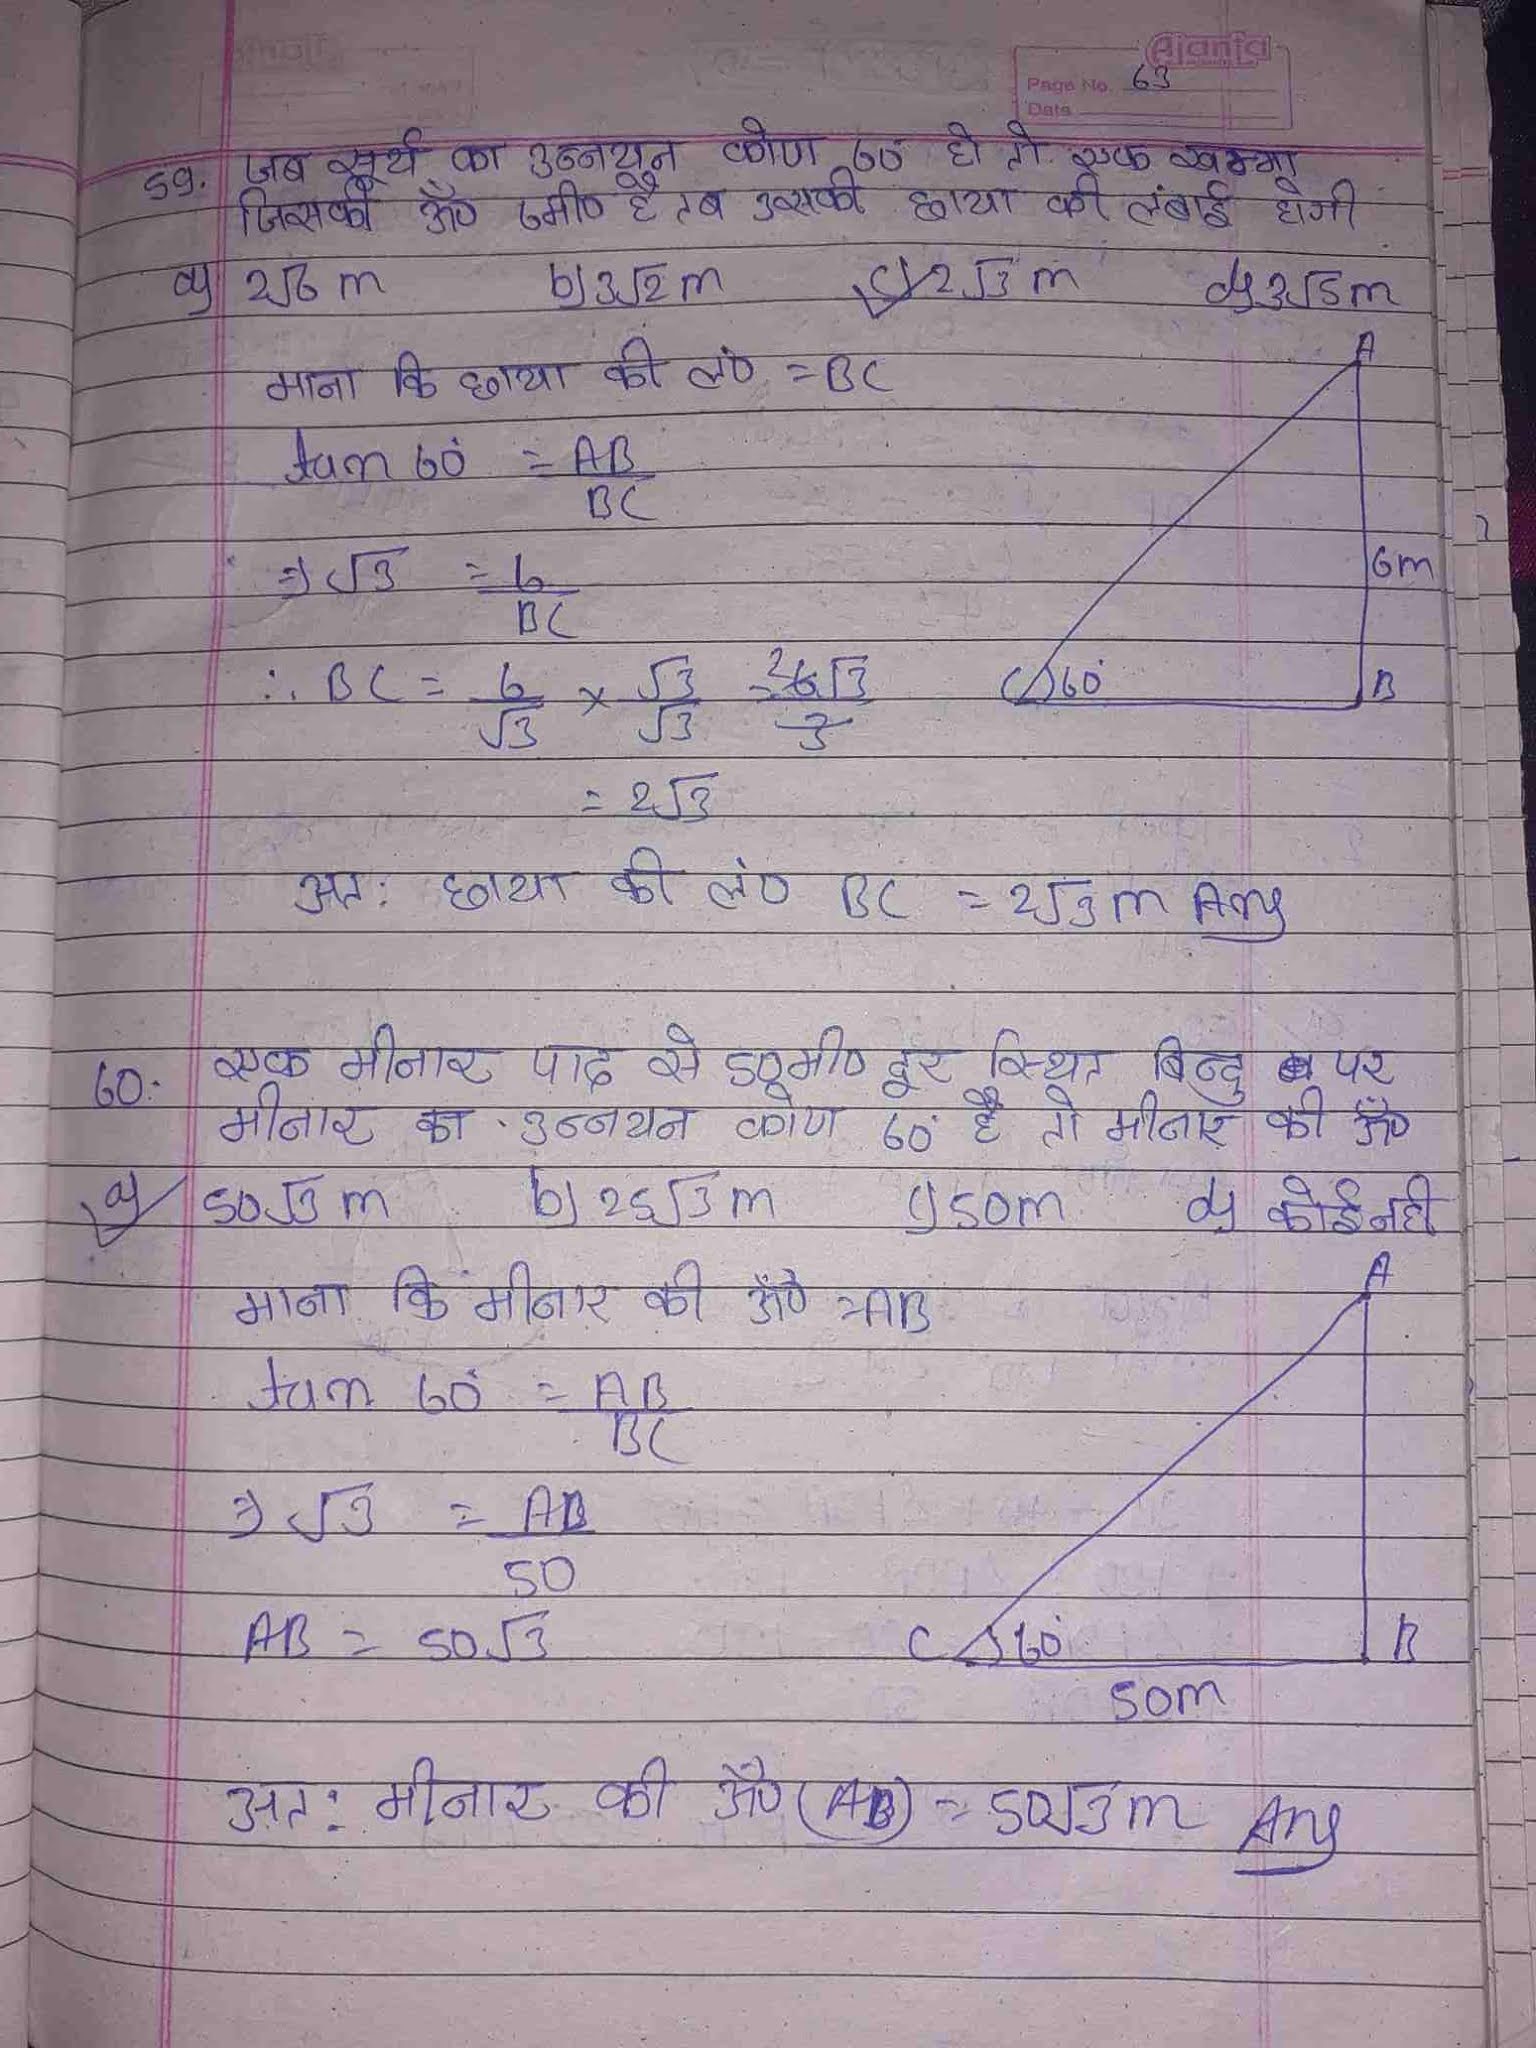 Ajanta
Page No. 63
Date
59. जब सूर्य का उन्नयन कोण 60° हो तो एक खम्भा
जिसकी ऊँ० 6मी० है तब उसकी छाया की लंबाई होगी
a) 2√6 m b) 3√2 m c) 2√3 m d) 3√5 m
माना कि छाया की लं० = BC
tan 60° = AB/BC
⇒ √3 = 6/BC
∴ BC = 6/√3 × √3/√3 = 2 6√3/3
= 2√3
अतः छाया की लं० BC = 2√3 m Ans
A
6m
C 60° B
60. एक मीनार पाद से 50मी० दूर स्थित बिन्दु पर
मीनार का उन्नयन कोण 60° है तो मीनार की ऊँ०
a) 50√3 m b) 25√3 m c) 50m d) कोई नही
माना कि मीनार की ऊँ० = AB
tan 60° = AB/BC
⇒ √3 = AB/50
AB = 50√3
A
C 60° B
50m
अतः मीनार की ऊँ० (AB) = 50√3 m Ans